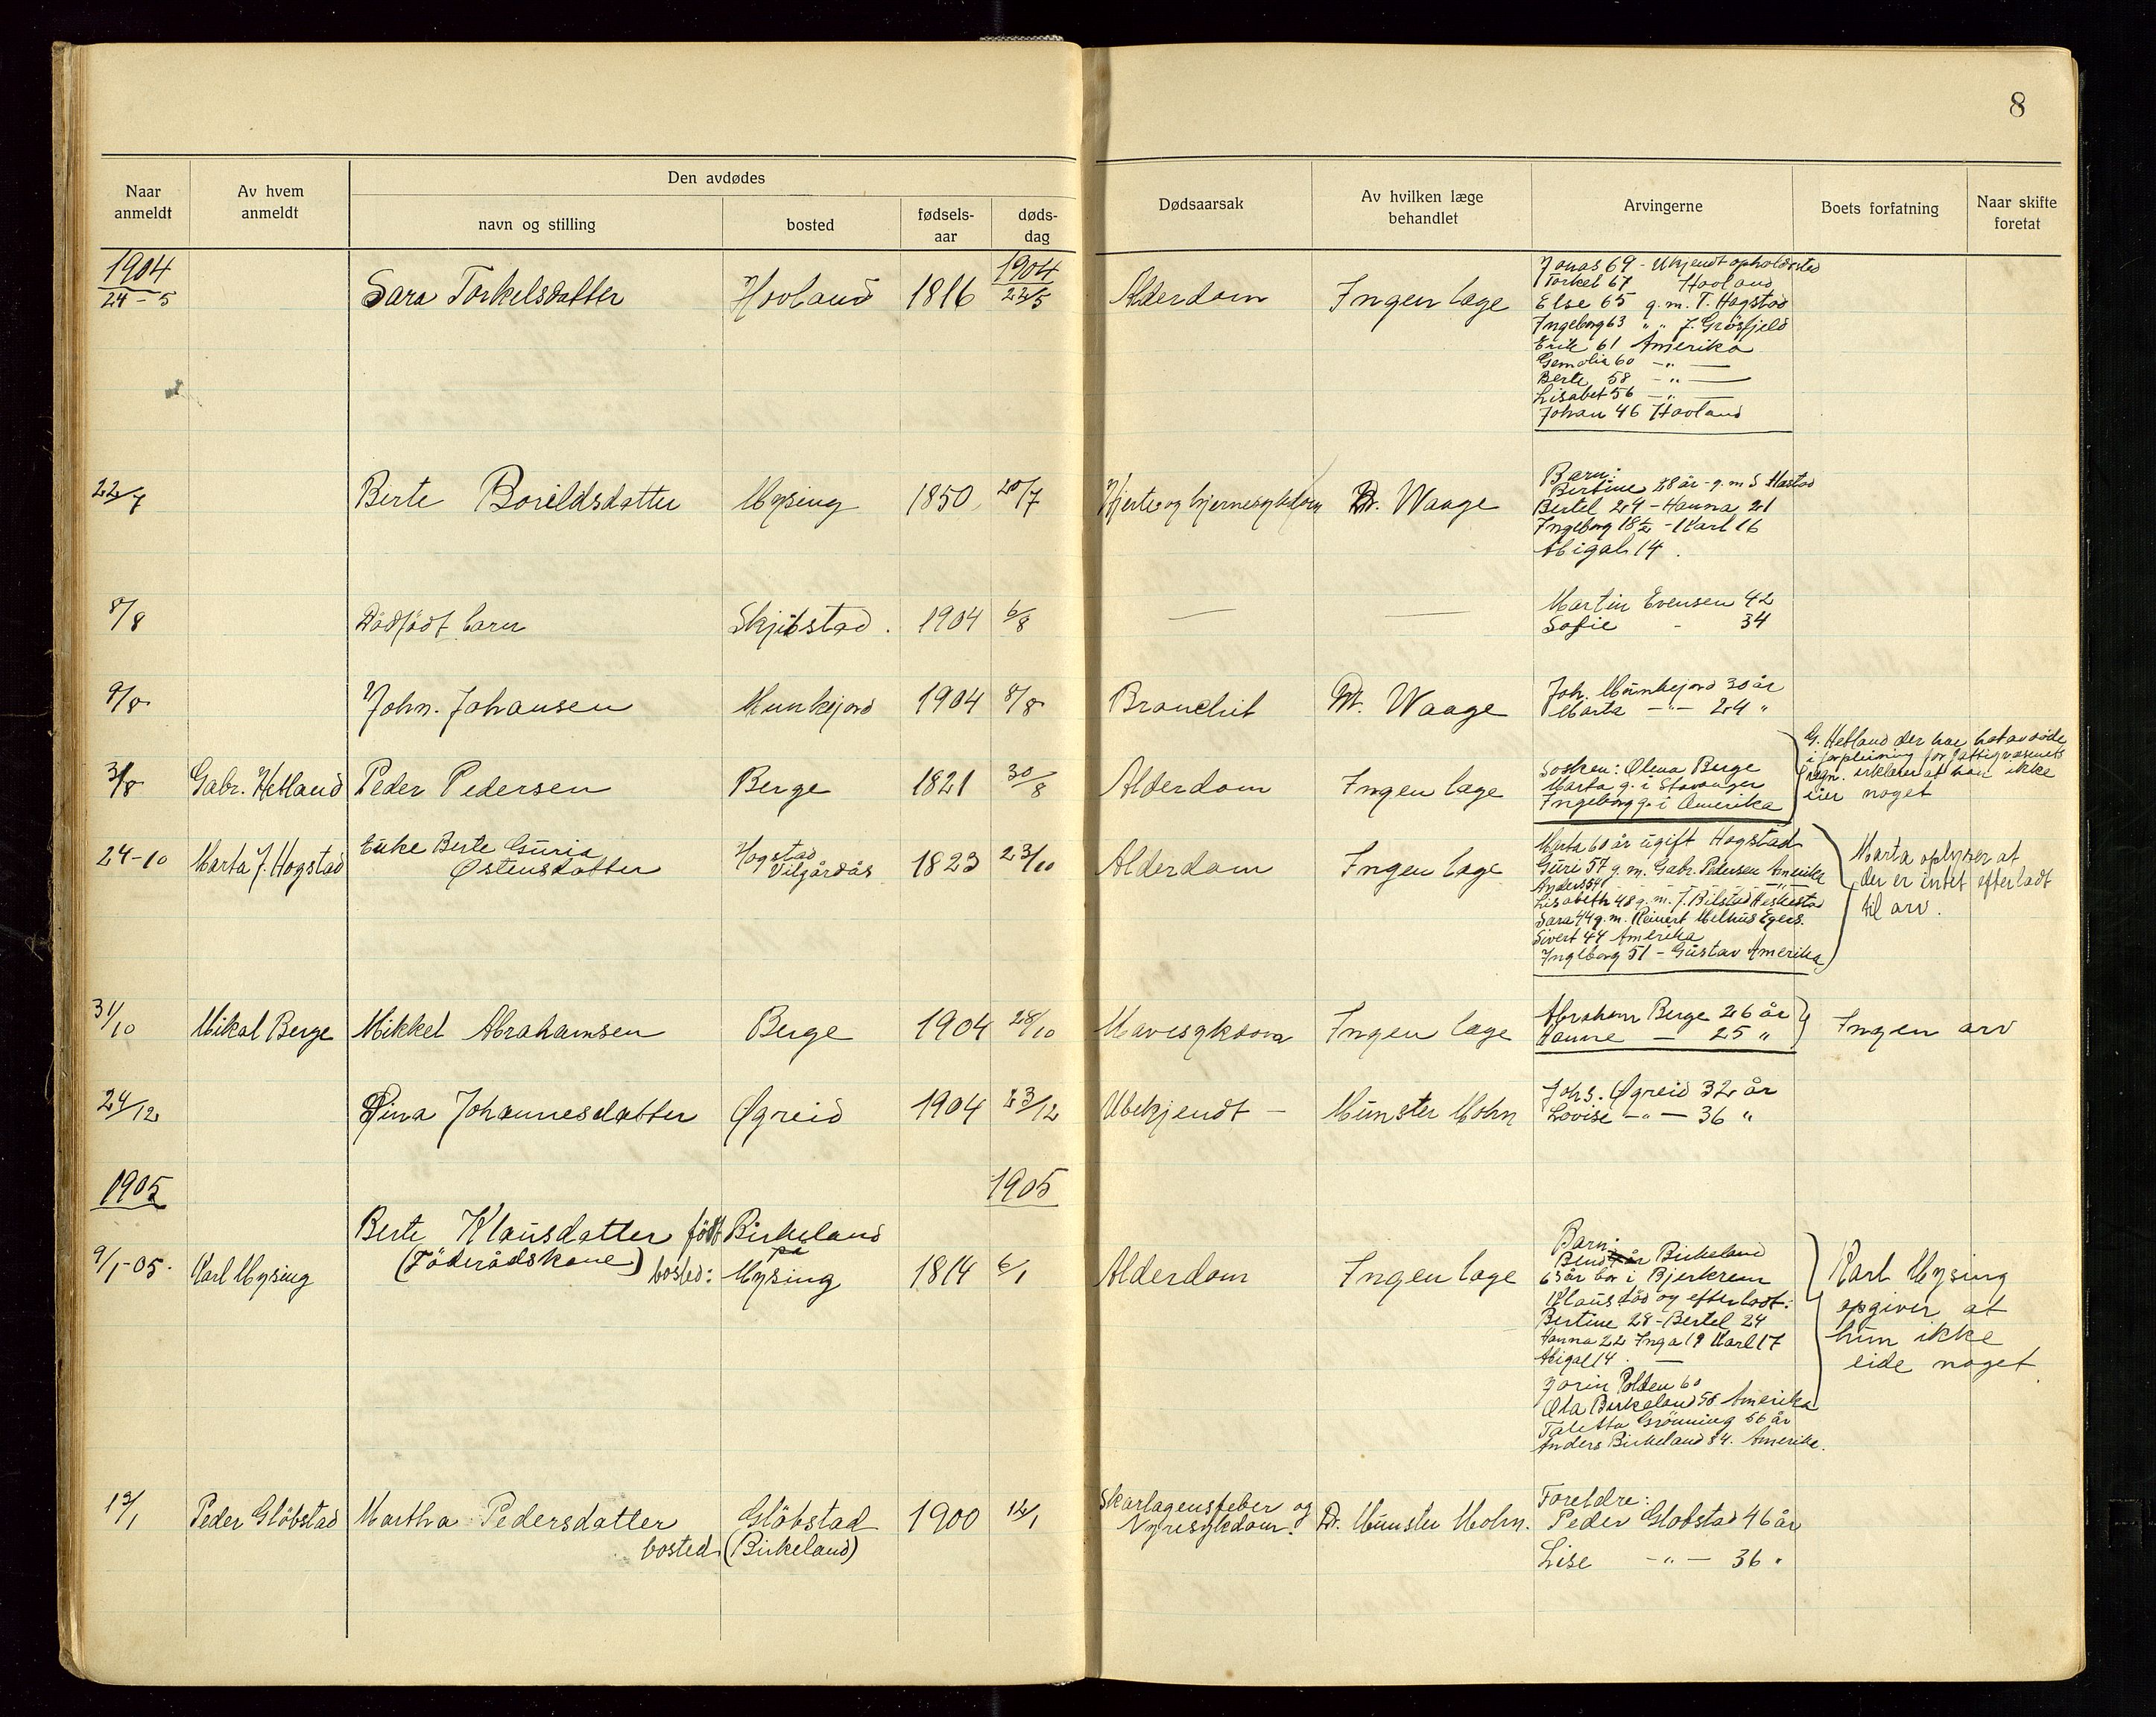 8
Naar anmeldt
Av hvem anmeldt
Den avdødes
navn og stilling
bosted
fødsels-aar
døds-dag
Dødsaarsak
Av hvilken læge behandlet
Arvingerne
Boets forfatning
Naar skifte foretat
1904
24-5
Sara Torkelsdatter
Hovland
1816
1904
22/5
Alderdom
Ingen læge
Jonas 69 - Ukjendt opholdssted
Torkel 67 Hovland
Else 65 g.m. T. Hogstad
Ingeborg 63 " " J. Grøsfjeld
Erik 61 Amerika
60 - " -
Berte 58 - " -
Lisabet 56 - " -
Johan 46 Hovland
22/7
Berte Boreldsdatter
Mysing
1850
20/7
Hjerte og hjernesykdom
Dr. Waage
Barn:
Bertine 28 år - g.m S Mastad
Bertel 24 - Hanna 21
Ingeborg 18½ - Karl 16
Abigal 14.
8/8
Dödfödt barn
Skjibstad.
1904
6/8
—
—
Martin Evensen 42
Sofie - 34
9/8
John. Johansen
Munkejord
1904
8/8
Bronchit
Dr. Waage
Joh. Munkejord 30 år
Marta - " - 24 "
31/8
Gabr. Hetland
Peder Pedersen
Berge
1821
30/8
Alderdom
Ingen læge
Sosken: Olena Berge
Marta g. i Stavanger
Ingeborg g. i Amerika
G. Hetland der har hat avdøde
i forpleining for fattigvæsenets
regn. erklærer at han ikke
eier noget
24-10
Marta J. Hogstad
Enke Berte Guria
Østensdatter
Hogstad
Vilgårdås
1823
23/10
Alderdom
Ingen læge
Marta 60 år ugift Hogstad
Guri 57 g.m. Gabr. Pedersen Amerika
Anders 54 - " -
Lisabeth 48 g.m. J. Bilstad Heskestad
Sara 44 g.m. Reinert Melhus Egers.
Sivert 44 Amerika
Ingeborg 51 - Gustav Amerika
Marta oplyser at
der er intet efterladt
til arv.
31/10
Mikal Berge
Mikkel Abrahamsen
Berge
1904
28/10
Mavesykdom
Ingen læge
Abraham Berge 26 år
Hanne — 25 "
Ingen arv
24/12
Dina Johannesdatter
Øgreid
1904
23/12
Ubekjendt -
Münster Mohn
Johs. Øgreid 32 år
Lovise - " - 36 "
1905
1905
Berte Klausdatter født
Birkeland
på
9/1-05.
Karl Mysing
(Föderådskone) bosted:
Mysing
1814
6/1
Alderdom
Ingen læge
Barn:
Birkeland
63 år bor i Bjerkreim
Klaus död og efterladt:
Bertine 28 - Bertel 24
Hanna 22 Inga 19 Karl 17
Abigal 14. —
Jorin Polden 60
Ola Birkeland 58 Amerika
Taletta Grönning 56 år
Anders Birkeland 54. Amerika.
Karl Mysing
opgiver at
hun ikke
eide noget
13/1
Peder Glöbstad
Martha Pedersdatter
bosted
Glöbstad
(Birkeland)
1900
12/1
Skarlagensfeber og
Nyresykdom.
Dr. Munster Mohn.
Foreldre:
Peder Globstad 46 år
Lise - " - 36 "